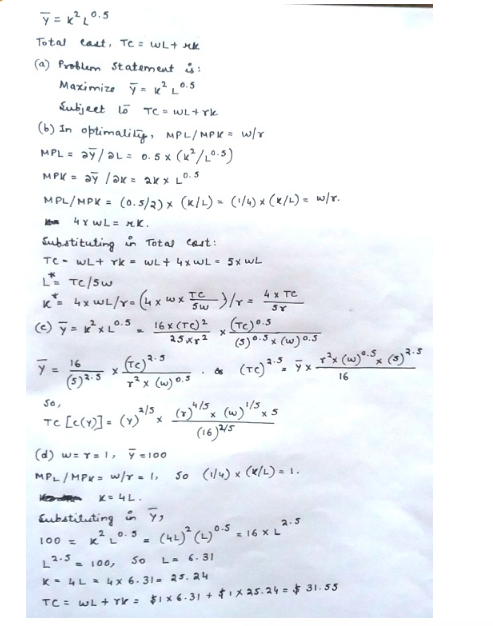 ȳ = K² L^0.5
Total cost, TC = wL + rk
(a) Problem Statement is:
Maximize ȳ = K² L^0.5
Subject to TC = wL + rk
(b) In optimality, MPL/MPK = w/r
MPL = ∂ȳ/∂L = 0.5 × (K²/L^0.5)
MPK = ∂ȳ/∂K = 2K × L^0.5
MPL/MPK = (0.5/2) × (K/L) = (1/4) × (K/L) = w/r.
4 × wL = rK.
Substituting in Total cost:
TC = wL + rk = wL + 4 × wL = 5 × wL
L* = TC/5w
K* = 4 × wL/r = (4 × w × TC/5w)/r = 4 × TC / 5r
(c) ȳ = K² × L^0.5 = 16 × (TC)² / 25 × r² × (TC)^0.5 / (5)^0.5 × (w)^0.5
ȳ = 16 / (5)^2.5 × (TC)^2.5 / r² × (w)^0.5 . (TC)^2.5 = ȳ × r² × (w)^0.5 × (5)^2.5 / 16
So,
TC [c(y)] = (y)^2/5 × (r)^4/5 × (w)^1/5 × 5 / (16)^2/5
(d) w = r = 1, ȳ = 100
MPL/MPK = w/r = 1, So (1/4) × (K/L) = 1.
K = 4L.
Substituting in ȳ,
100 = K² L^0.5 = (4L)² (L)^0.5 = 16 × L^2.5
L^2.5 = 100, So L = 6.31
K = 4L = 4 × 6.31 = 25.24
TC = wL + rk = $1 × 6.31 + $1 × 25.24 = $ 31.55